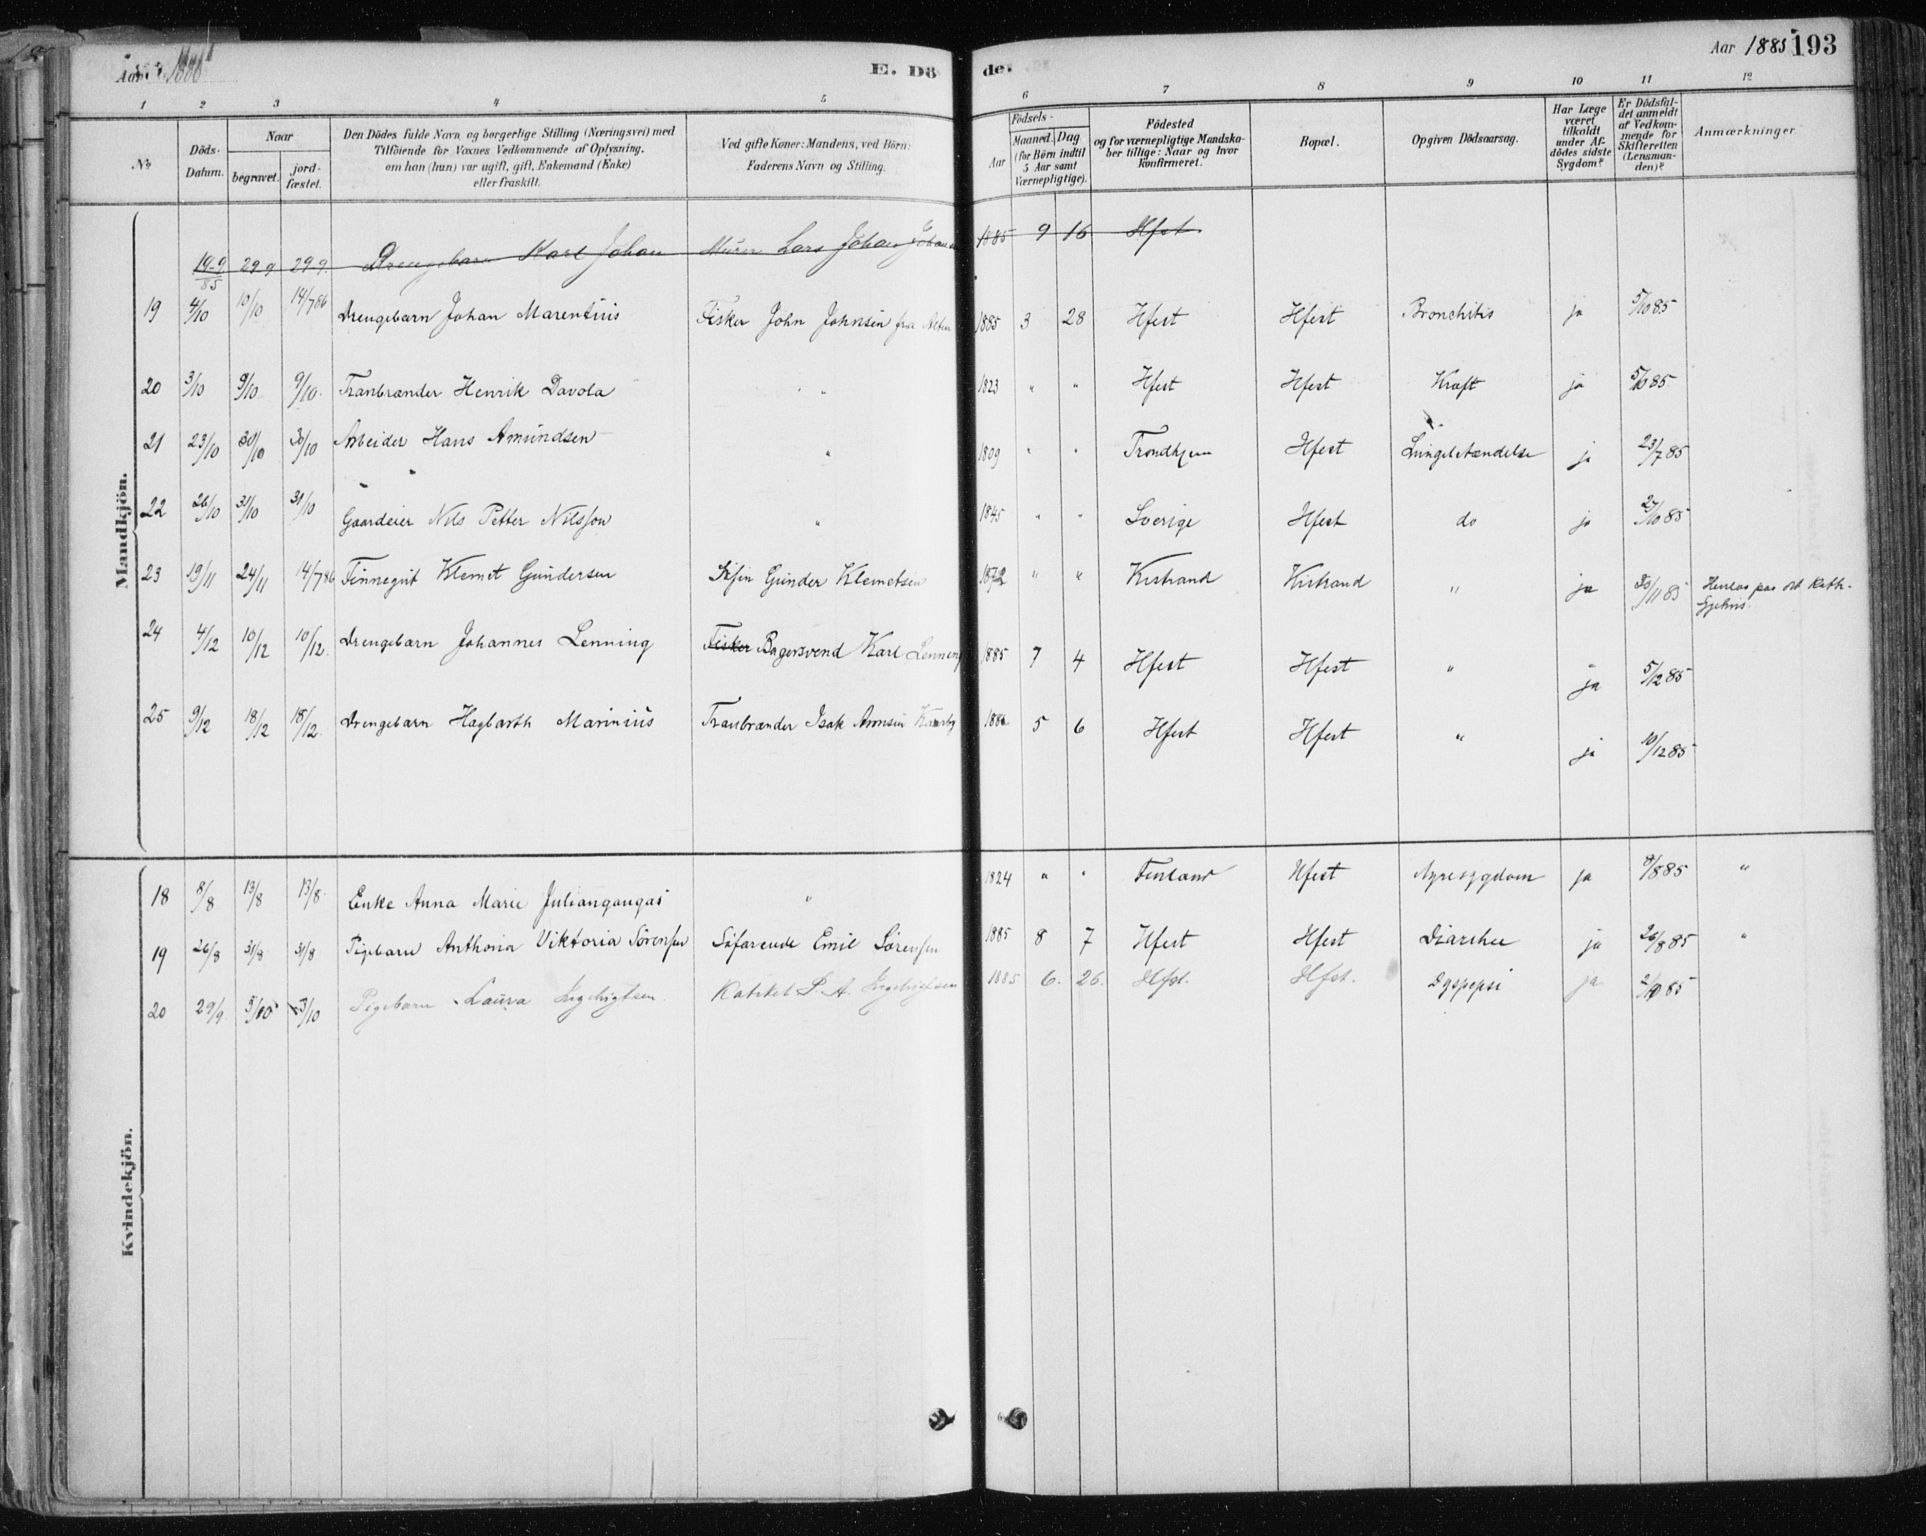 Aar 1885 193
E. Dö de.
1 2 3 4 5 6 7 8 9 10 11 12
No.
Döds-Datum.
Naar
begravet.
jord-fæstet.
Den Dödes fulde Navn og borgerlige Stilling (Næringsvei) med
Tilföiende for Voxnes Vedkommende af Oplysning,
om han (hun) var ugift, gift, Enkemand (Enke)
eller fraskilt.
Ved gifte Koner: Mandens, ved Börn:
Faderens Navn og Stilling.
Födsels-
Aar
Maaned. Dag
(for Börn indtil
5 Aar samt
Værnepligtige).
Födested
og for værnepligtige Mandska-
ber tillige: Naar og hvor
konfirmeret.
Bopæl.
Opgiven Dödsaarsag.
Har Læge
været
tilkaldt
under Af-
dödes sidste
Sygdom?
Er Dödsfal-
det anmeldt
af Vedkom-
mende for
Skifteretten
(Lensman-
den)?
Anmærkninger
Mandkjön.
19-9/85 29-9 29-9. Drengebarn Karl Johan Murer Lars Johan 1885 9 16 Hfest
19 4/10 10/10 14/7 86 Drengebarn Johan Marentius Fisker John Johnsen fra Alten 1885 3 28 Hfest Hfest Bronchitis ja 5/10 85
20 3/10 9/10 9/10. Tranbrænder Henrik Davola " 1823 " " Hfest Hfest Kræft ja 5/10 85
21 23/10 30/10 30/10 Arbeider Hans Amundsen " 1809 " " Trondhjem Hfest Lungebetændelse ja 23/7 85
22 26/10 31/10 31/10 Gaardeier Nils Petter Nilsson " 1845 " " Sverige Hfest do ja 27/10 85
23 19/11 24/11 14/7 86 Finnegut Klemet Gundersen Gunder Klemetsen 1872 " " Kistrand Kistrand " ja 30/11 85
24 4/12 10/12 10/12. Drengebarn Johannes Lenning Fisker Bagersvend Karl Lenning 1885 7 4 Hfest Hfest " ja 5/12 85
25 9/12 18/12 18/12. Drengebarn Hagbarth Marinius Tranbrænder Isak 5 6 Hfest Hfest " ja 10/12 85
Kvindekjön.
18 8/8 13/8 13/8. Enke Anna Marie Juliangangas " 1824 " " Finland Hfest Nyresygdom ja 8/8 85 "
19 26/8 31/8 31/8 Pigebarn Anthonia Viktoria Sørensen Søfarende Emil Sørensen 1885 8 7 Hfest Hfest Diarrhee ja 26/8 85 "
20 29/9. 5/10 3/10 Pigebarn Laura 1885. 6. 26. Hfst. Hfst. Dyspepsi ja 2/10 85